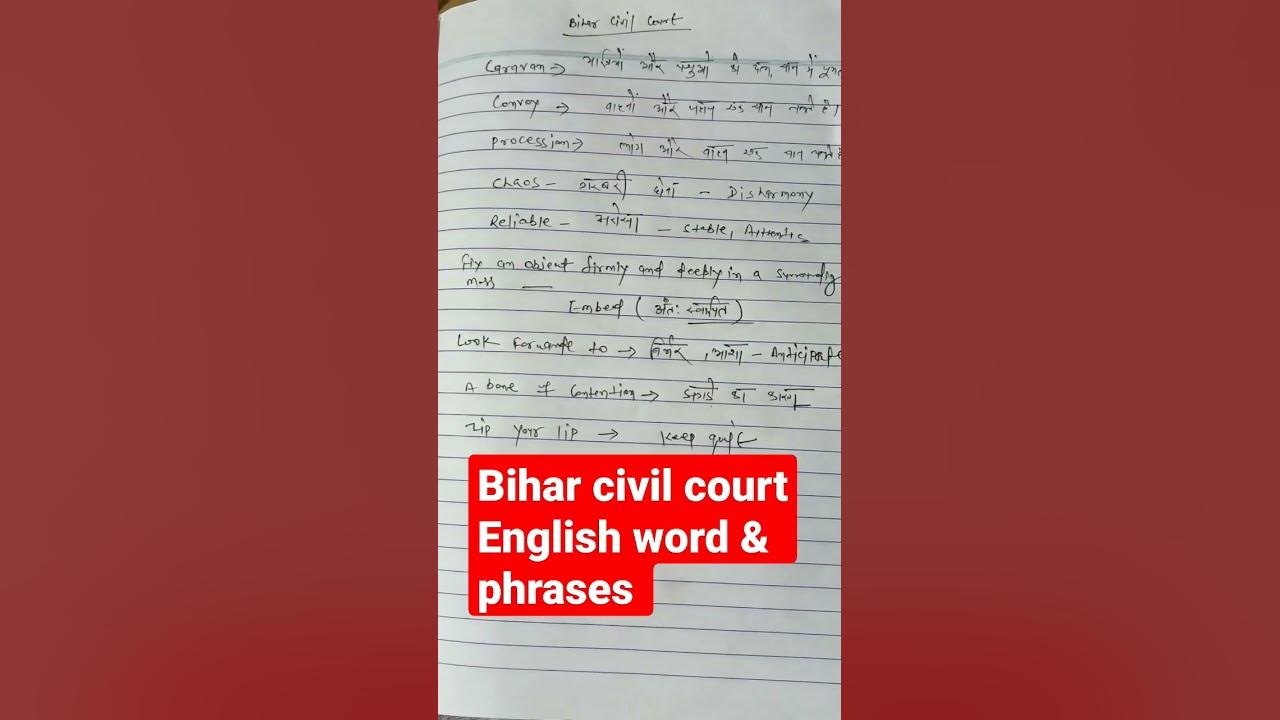 Bihar Civil Court
Caravan → यात्रियों और पशुओ के दल, साथ में
Convoy → वाहनों और एक साथ चलते है।
Procession → लोग और वाहन एक साथ चलते
Chaos - गड़बड़ी होना - Disharmony
Reliable - भरोसा - Stable, Authentic
fix an object firmly and deeply in a surrounding
mass
Embed ( अंत: स्थापित )
Look forward to → निर्भर , आशा - Anticipate
A bone of Contention → झगड़े का कारण
Zip your lip → Keep quiet
Bihar civil court
English word &
phrases